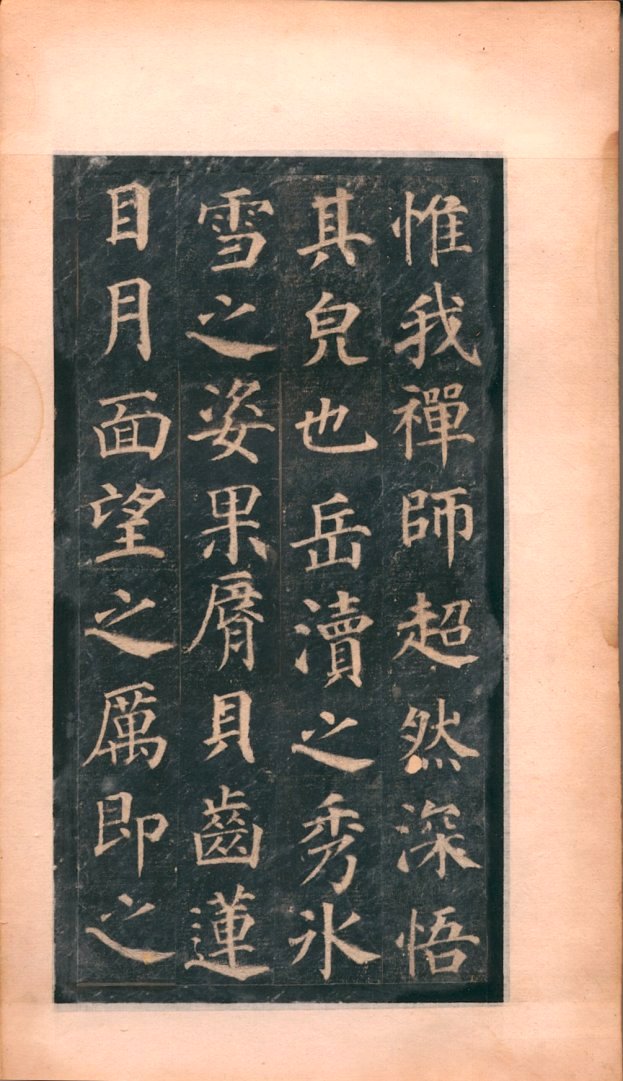 惟我禪師超然深悟
其皃也岳瀆之秀氷
雪之姿果脣貝齒蓮
目月面望之厲即之